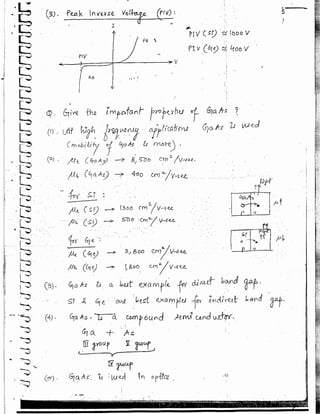 (8). Peak Inverse Voltage (PIV) :
I
FB
PIV
V
RB
PIV (Si) ≈ 1000 V
PIV (Ge) ≈ 400 V
Q. Give the important properties of GaAs ?
(1). At high frequency applications GaAs is used
(mobility of GaAs is more).
(2). μe (GaAs) → 8,500 cm²/V-sec.
μh (GaAs) → 400 cm²/V-sec
for Si :
μe (Si) → 1300 cm²/V-sec
μh (Si) → 500 cm²/V-sec
for Ge :
μe (Ge) → 3,800 cm²/V-sec
μh (Ge) → 1,800 cm²/V-sec
GaAs
Si
μh
(3). GaAs is a best example for direct band gap.
Si & Ge are best examples for indirect band gap.
(4). GaAs is a compound semi conductor.
Ga + As
III group V group
(5). GaAs is used in optics